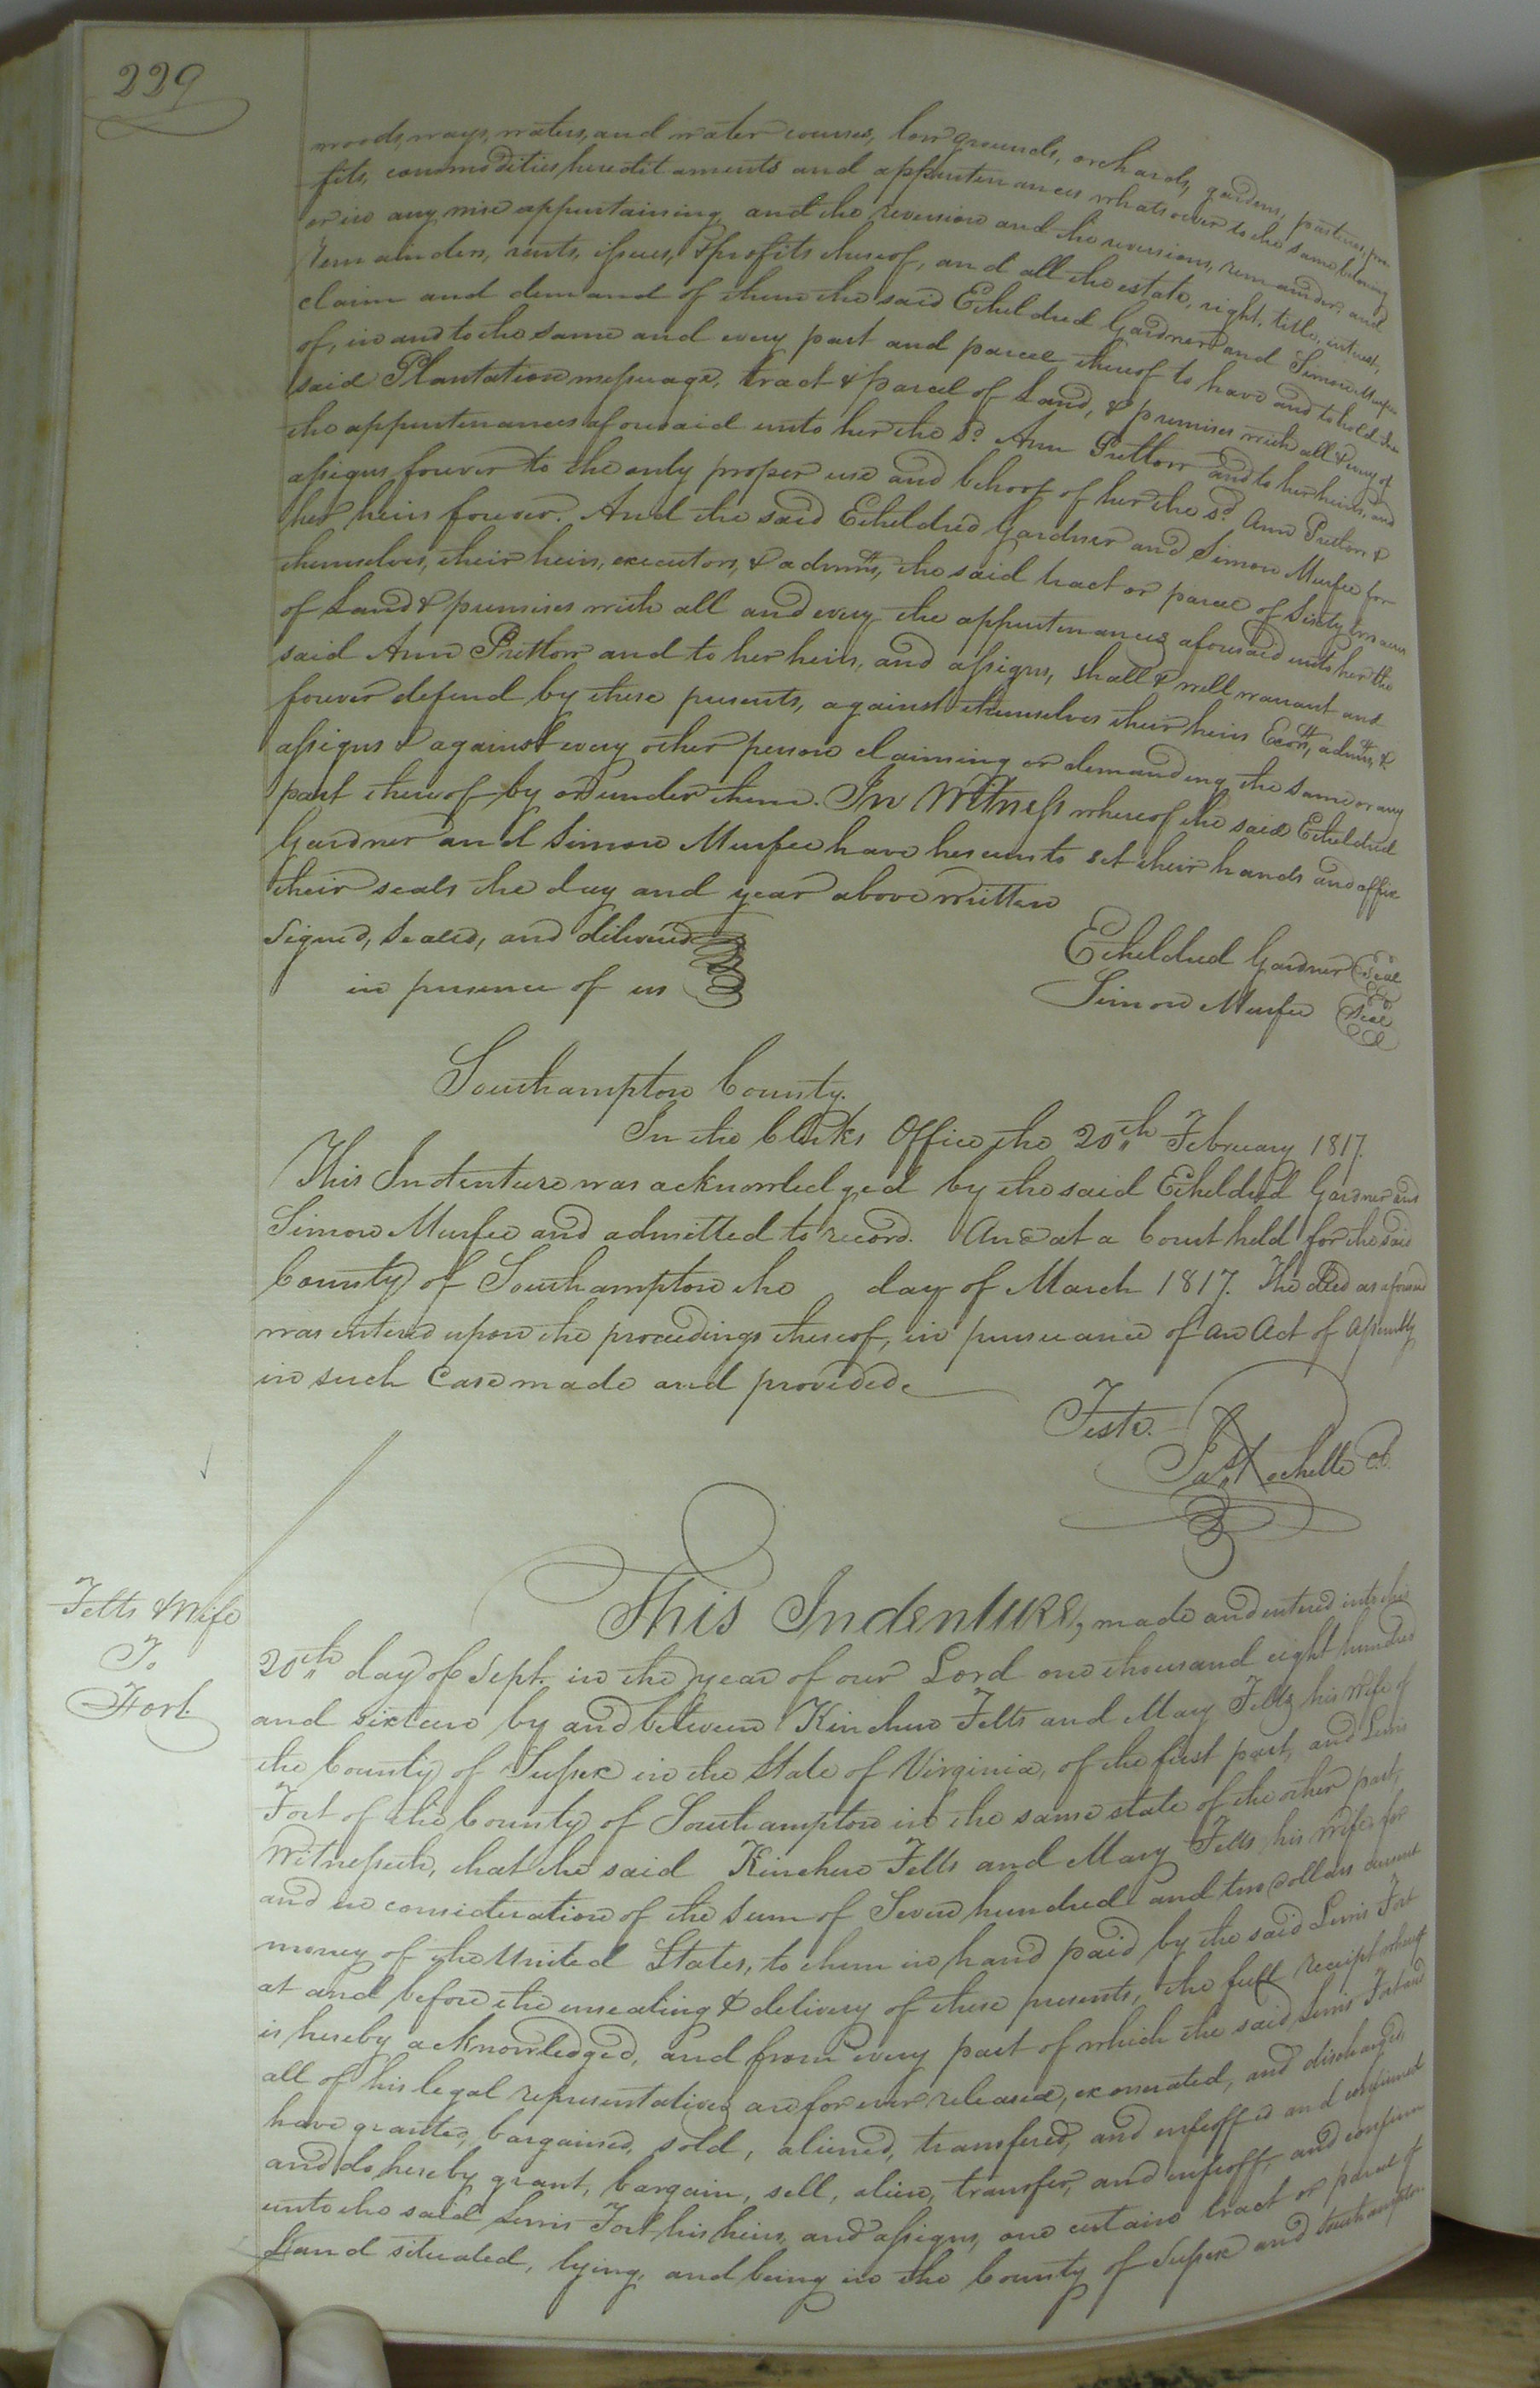 229
woods, ways, waters, and water courses, low grounds, orchards, gardens, pastures, pro
fits, commodities hereditaments and appurtenances whatsoever to the same belonging
or in any wise appurtaining, and the reversion and the reversions, remainder, and
remainders, rents, issues, & profits thereof, and all the estate, right, title, interest,
claim and demand of them the said Etheldred Gardner and Simon Murfee
of, in and to the same and every part and parcel thereof to have and to hold the
said Plantation messuage, tract & parcel of Land, & premises with all & every of
the appurtenances aforesaid unto her the sd. Ann Pretlow and to her heirs, and
assigns forever to the only proper use and behoof of her the sd. Ann Pretlow &
her heirs forever. And the said Etheldred Gardner and Simon Murfee for
themselves, their heirs, executors, & admrs, the said tract or parcel of Sixty two acres
of Land & premises with all and every the appurtenances aforesaid unto her the
said Ann Pretlow and to her heirs, and assigns, shall & will warrant and
forever defend by these presents, against themselves their heirs Exors, admrs, &
assigns & against every other person claiming or demanding the same or any
part thereof by or under them. In Witness whereof the said Etheldred
Gardner and Simon Murfee have hereunto set their hands and affix
their seals the day and year above written
Signed, Sealed, and delivered
in presence of us
Etheldred Gardner Seal
Simon Murfee Seal
Southampton County.
In the Clerks Office the 20th February 1817.
This Indenture was acknowledged by the said Etheldred Gardner and
Simon Murfee and admitted to record. And at a Court held for the said
County of Southampton the day of March 1817. The deed as aforesaid
was entered upon the proceedings thereof, in pursuance of an Act of Assembly
in such case made and provided.
Teste.
Jas Rochelle C.C.
Felts & Wife
To
Fort.
This Indenture, made and entered into the
20th day of Sept. in the year of our Lord one thousand eight hundred
and sixteen by and between Kinchen Felts and Mary Felts his wife of
the County of Sussex in the State of Virginia, of the first part, and Lewis
Fort of the County of Southampton in the same state of the other part,
Witnesseth, that the said Kinchen Felts and Mary Felts his wife, for
and in consideration of the Sum of Seven hundred and two dollars current
money of the United States, to them in hand paid by the said Lewis Fort
at and before the ensealing & delivery of these presents, the full receipt whereof
is hereby acknowledged, and from every part of which the said Lewis Fort and
all of his legal representatives are forever released, exonerated, and discharged
have granted, bargained, sold, aliened, transfered, and enfeoffed and confirmed
and do hereby grant, bargain, sell, alien, transfer, and enfeoff, and confirm
unto the said Lewis Fort his heirs, and assigns, one certain tract or parcel of
Land situated, lying, and being in the County of Sussex and Southampton